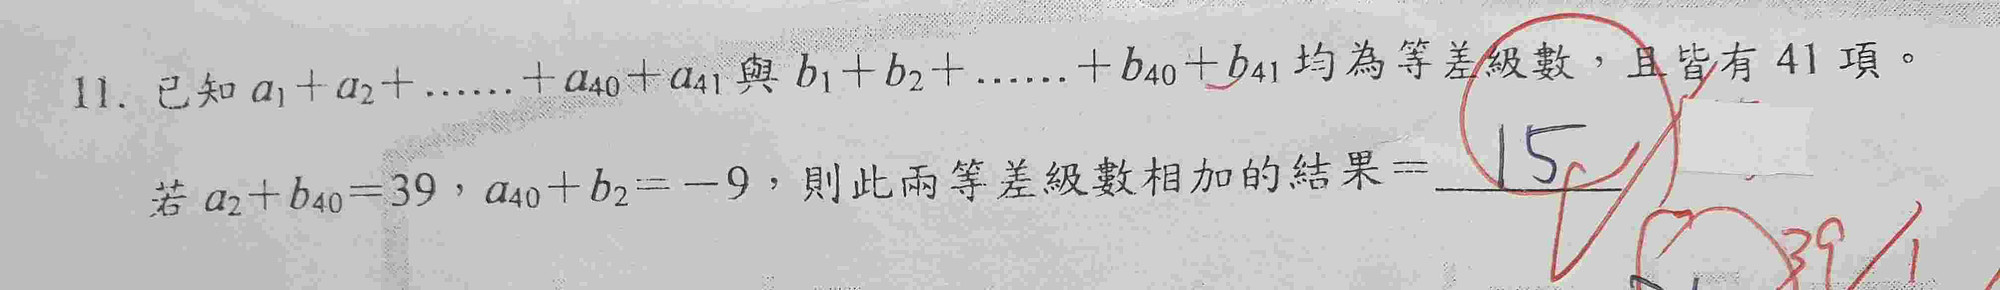 11. 已知 a₁+a₂+……+a₄₀+a₄₁與 b₁+b₂+……+b₄₀+b₄₁均為等差級數，且皆有 41 項。
若 a₂+b₄₀=39，a₄₀+b₂=－9，則此兩等差級數相加的結果= 15
39/1